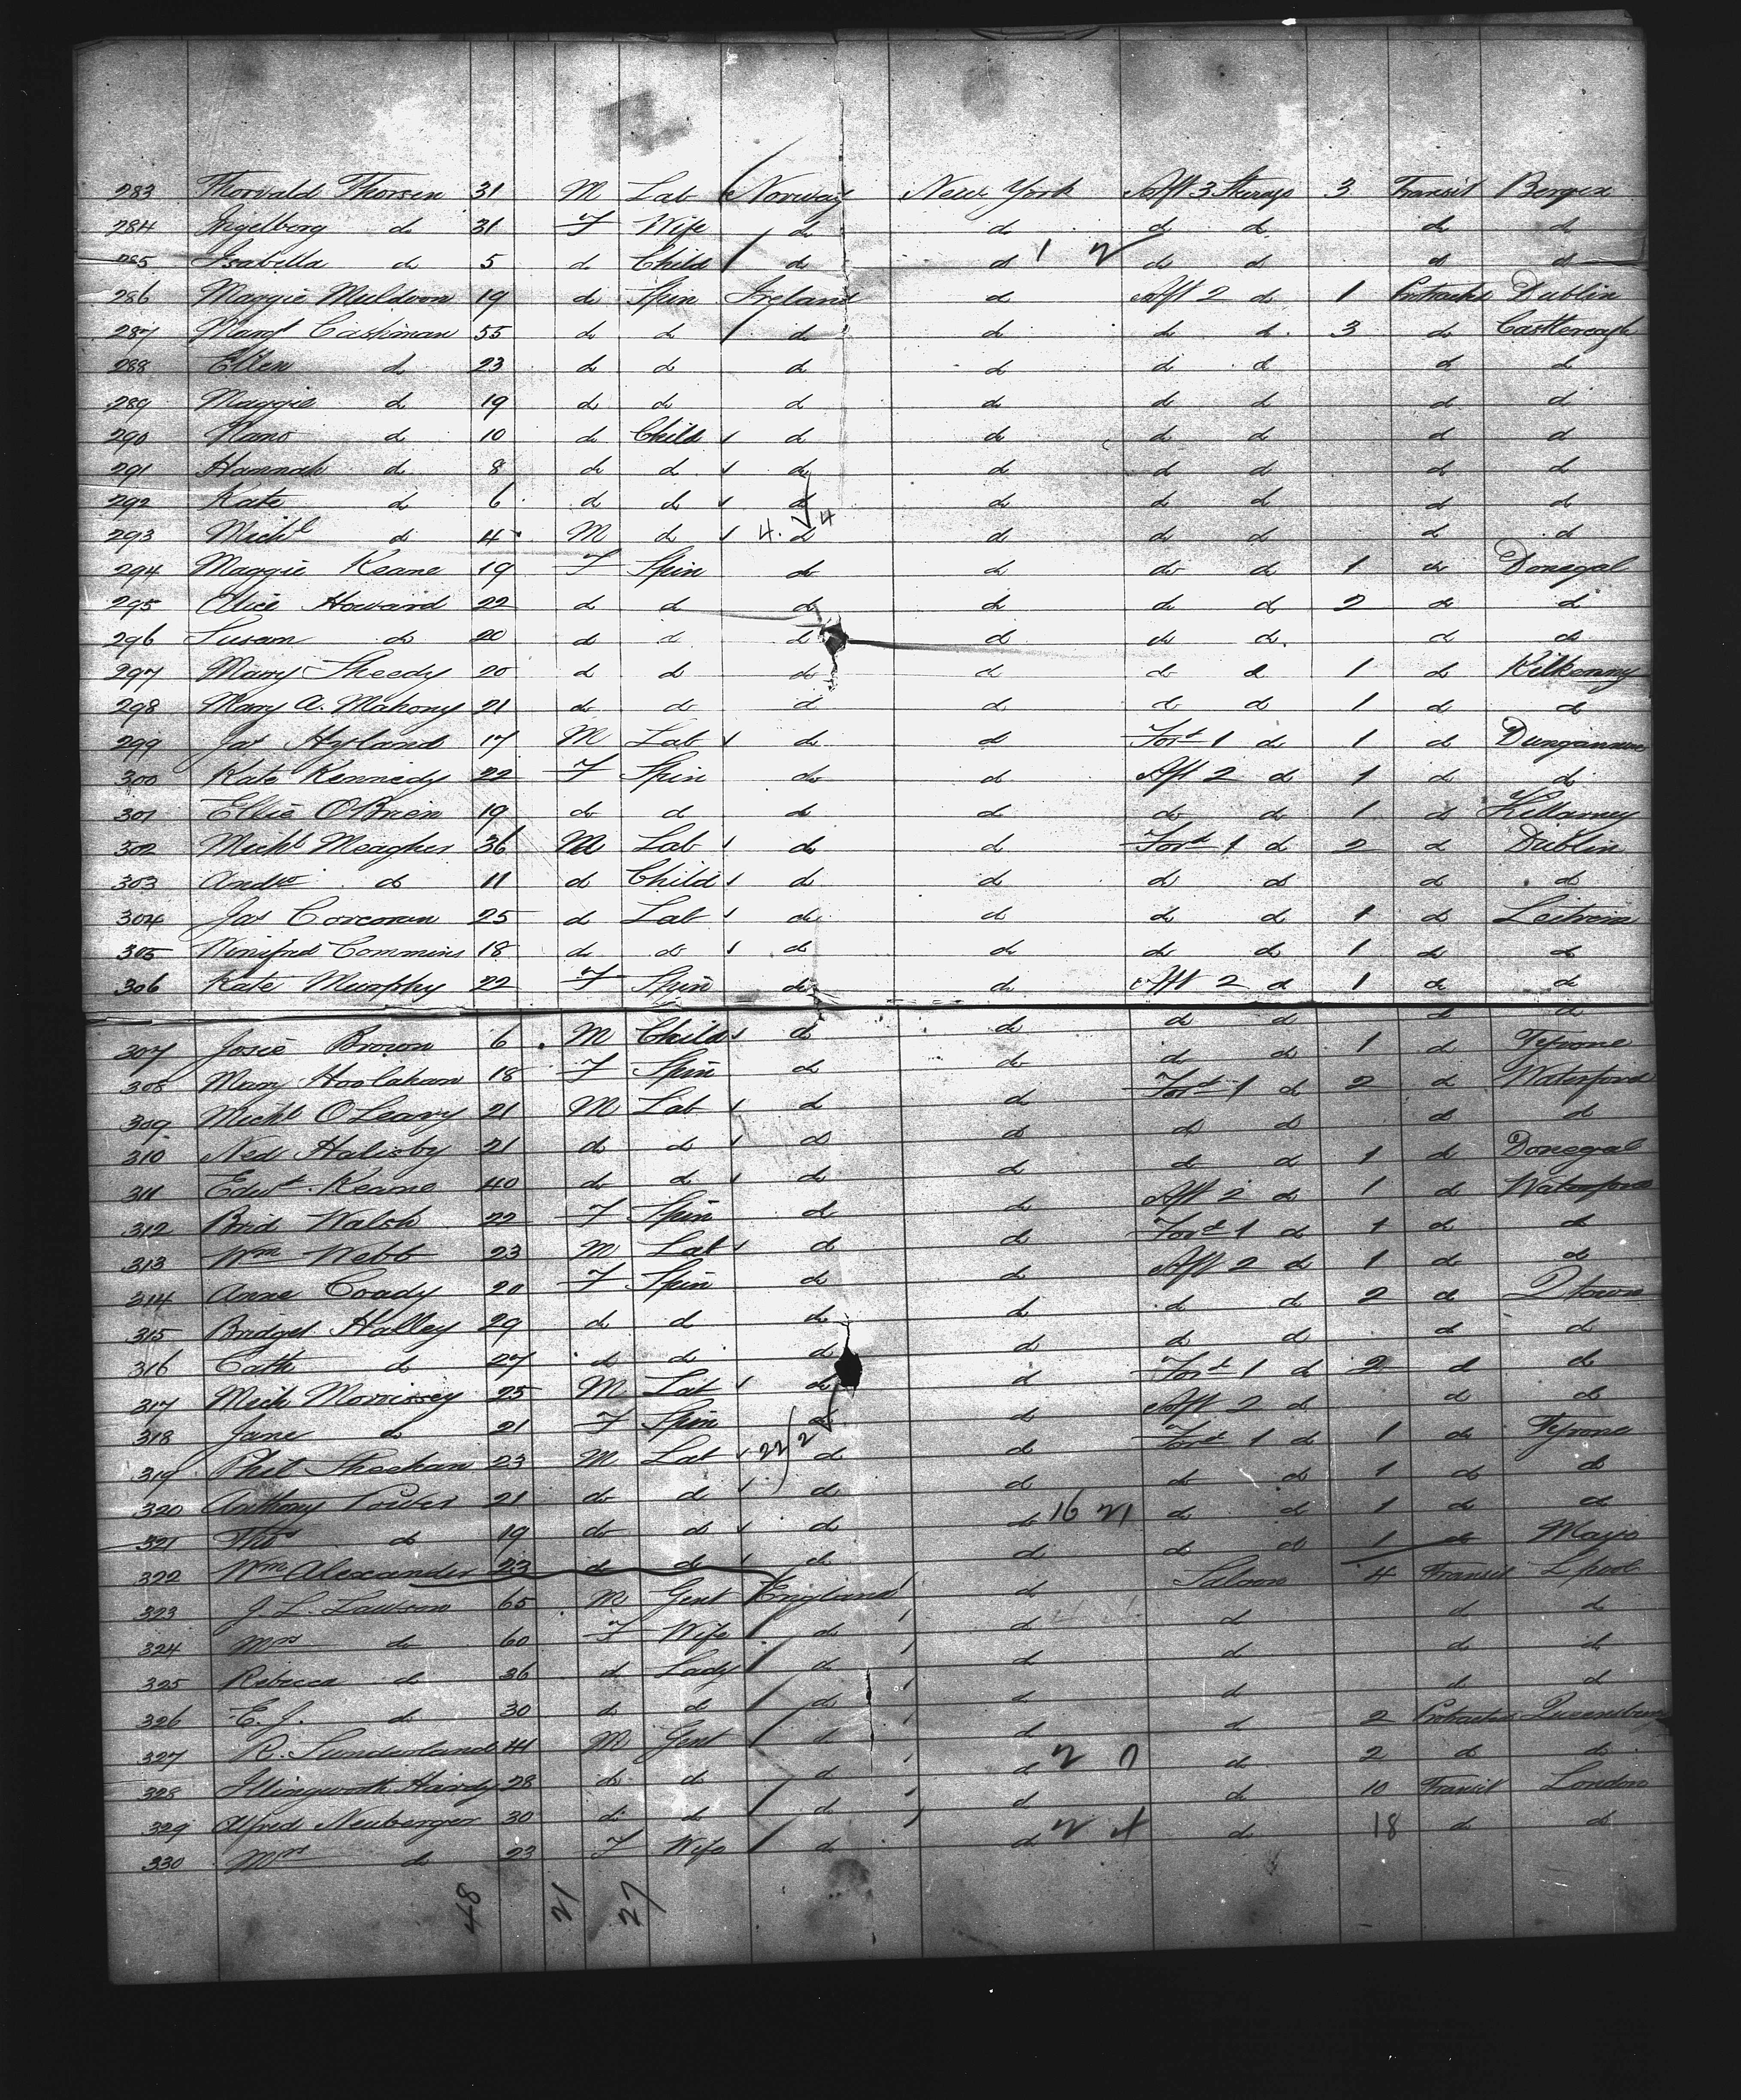 283 Thorvald Thorsen 31 M Lab Norway New York Aft 3 Steerage 3 Transit Bergen
284 Ingelborg do 31 F Wife do do do do do do
285 Isabella do 5 do Child do do 1 2 do do do do
286 Maggie Muldoon 19 do Spin Ireland do Aft 2 do 1 Protracted Dublin
287 Marg^t Cashman 55 do do do do do do 3 do Castlereagh
288 Ellen do 23 do do do do do do do do
289 Maggie do 19 do do do do do do do do
290 Nano do 10 do Child do do do do do do
291 Hannah do 8 do do do do do do do do
292 Kate do 6 do do do do do do do do
293 Mich^l do 4 M do 4. do 4 do do do do do
294 Maggie Keane 19 F Spin do do do do 1 do Donegal
295 Alice Howard 22 do do do do do do 2 do do
296 Susan do 20 do do do do do do do do
297 Mary Sheedy 20 do do do do do do 1 do Kilkenny
298 Mary A. Mahony 21 do do do do do do 1 do do
299 Jas Hyland 17 M Lab do do For^d 1 do 1 do Dungannon
300 Kate Kennedy 22 F Spin do do Aft 2 do 1 do do
301 Ellie OBrien 19 do do do do do do 1 do Killarney
302 Mich^l Meagher 36 M Lab do do For^d 1 do 2 do Dublin
303 And^w do 11 do Child do do do do do do
304 Jas Corcoran 25 do Lab do do do do 1 do Leitrim
305 Winifred Commins 18 do do do do do do 1 do do
306 Kate Murphy 22 F Spin do do Aft 2 do 1 do do
307 Josie Brown 6 M Child do do do do do do
308 Mary Hoolahan 18 F Spin do do do do 1 do Tyrone
309 Mich^l OLeary 21 M Lab do do For^d 1 do 2 do Waterford
310 Ned Halisby 21 do do do do do do do do
311 Edw^d Keane 40 do do do do do do 1 do Donegal
312 Brid Walsh 22 F Spin do do Aft 2 do 1 do Waterford
313 W^m Webb 23 M Lab do do For^d 1 do 1 do do
314 Anne Coady 20 F Spin do do Aft 2 do 1 do do
315 Bridget Halley 29 do do do do do do 2 do Q town
316 Cath do 27 do do do do do do do do
317 Mich Morrissey 25 M Lab do do For^d 1 do 2 do do
318 Jane do 21 F Spin do do Aft 2 do do do
319 Phil Sheehan 23 M Lab 22 2 do do For^d 1 do 1 do Tyrone
320 Anthony 21 do do do do do do 1 do do
321 Tho^s do 19 do do do do 16 21 do do 1 do do
322 W^m Alexander 23 do do do do do do 1 do Mayo
323 J. L. Lawson 65 M Gent England do Saloon 4 Transit L'pool
324 Mrs do 60 F Wife do do do do do
325 Rebecca do 36 do Lady do do do do do
326 E. J. do 30 do do do do do do do
327 R. Sunderland 44 M Gent do do do 2 Protracted Queensbury
328 Illingworth Hardy 28 do do do do 2 do 2 do do
329 Alfred Neuberger 30 do do do do do 10 Transit London
330 Mrs do 23 F Wife do do 2 do 18 do do
48 21 27